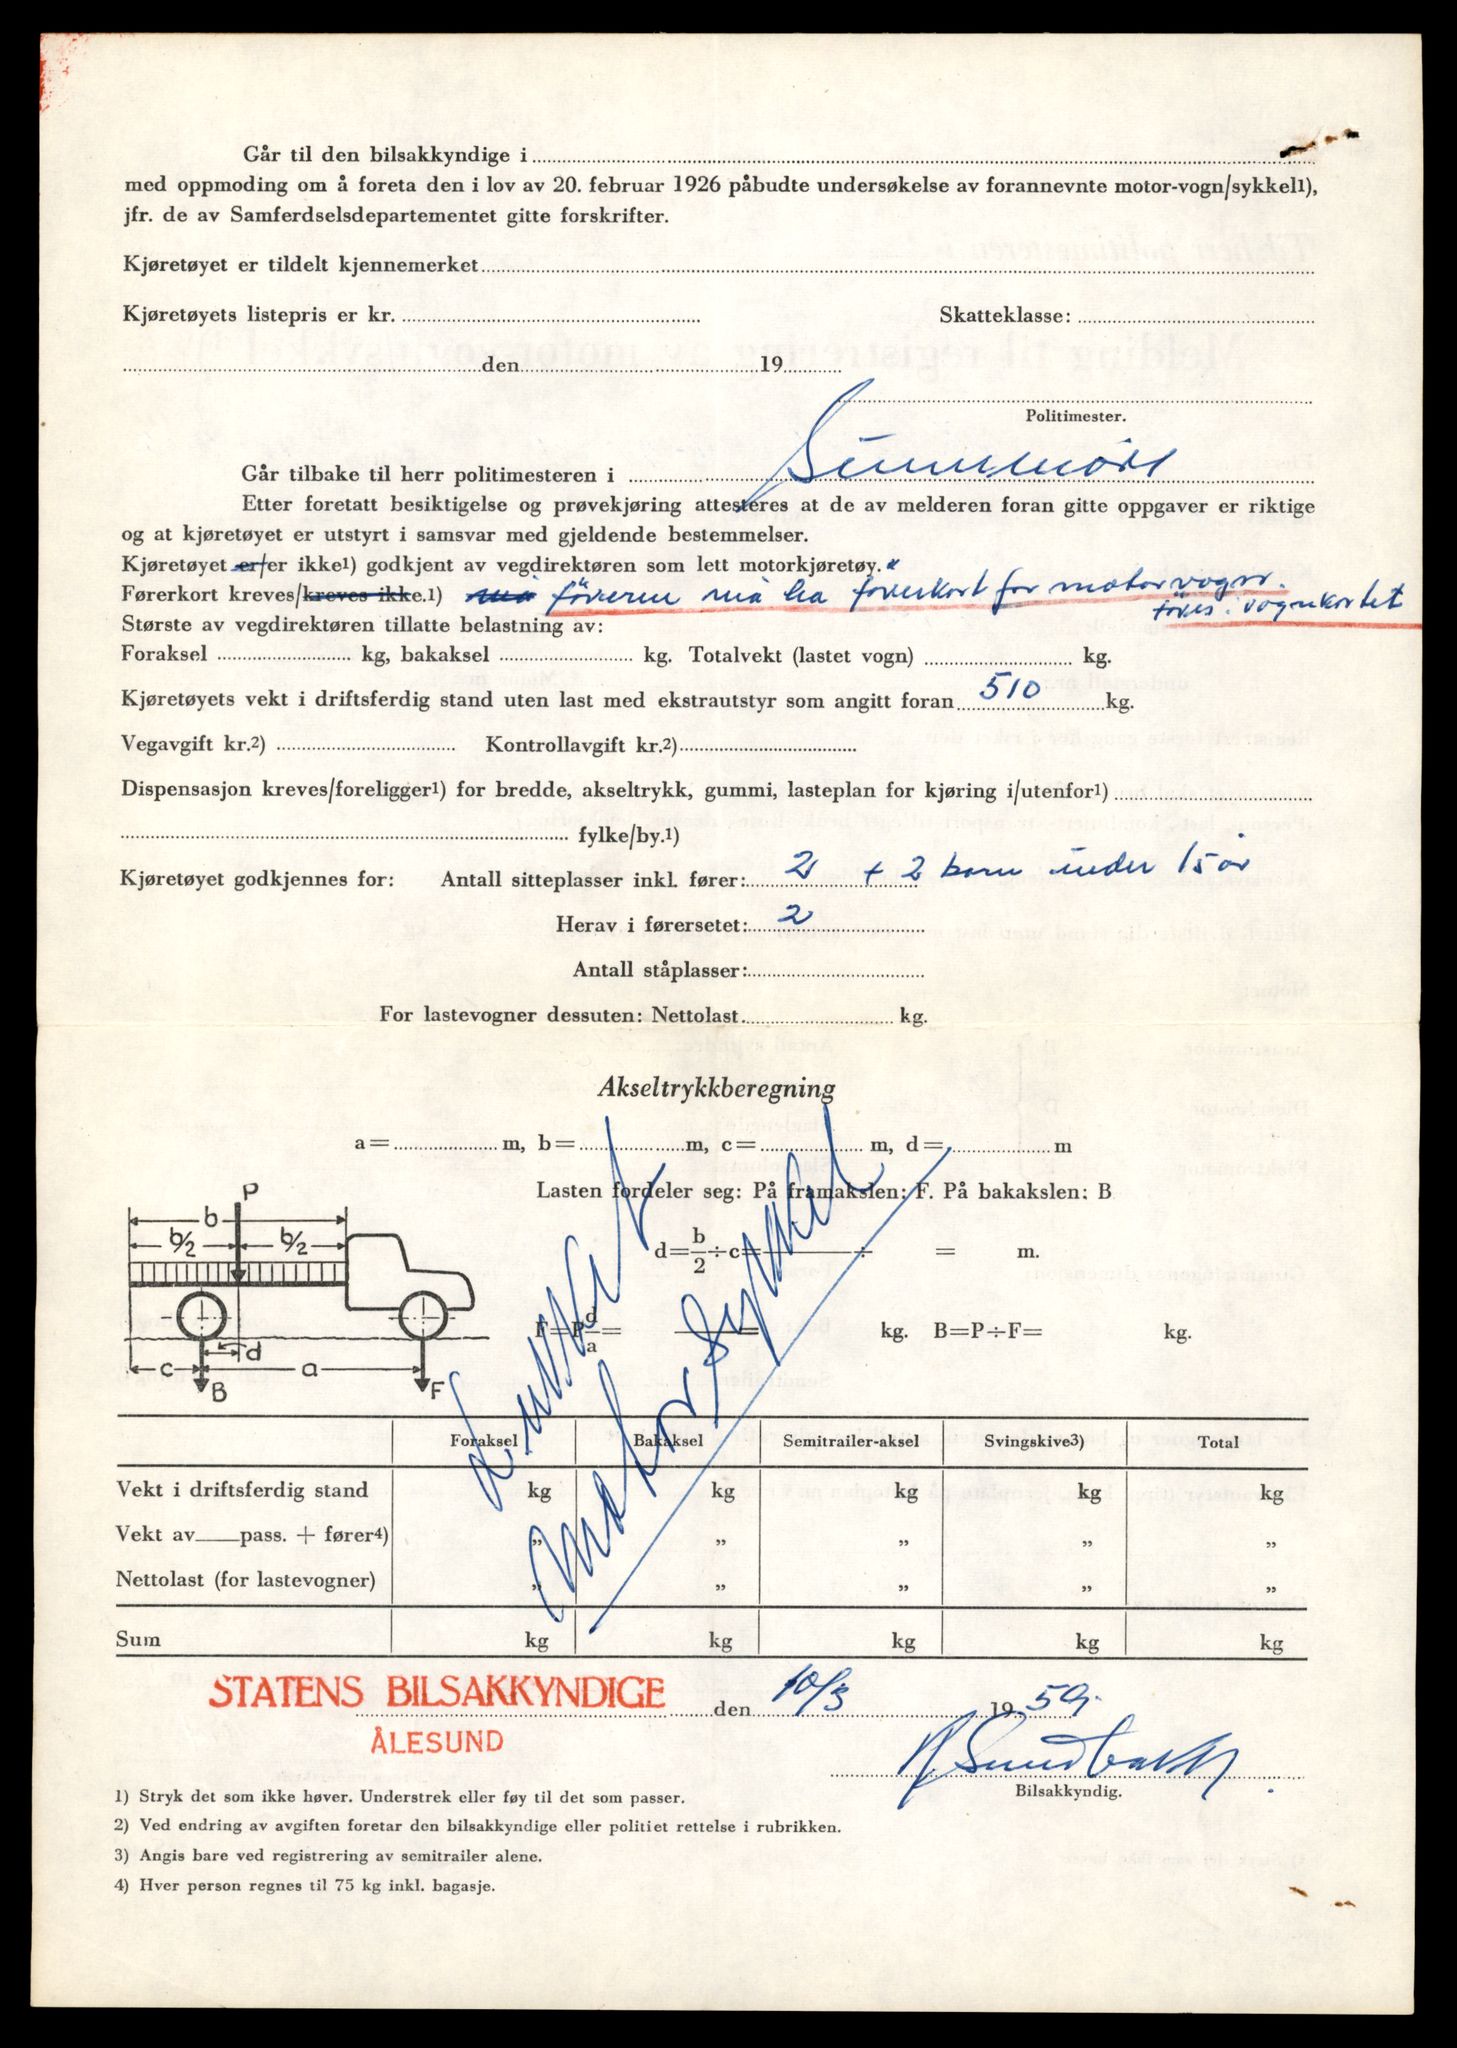 Går til den bilsakkyndige i
med oppmoding om å foreta den i lov av 20. februar 1926 påbudte undersøkelse av forannevnte motor-vogn/sykkel1),
jfr. de av Samferdselsdepartementet gitte forskrifter.
Kjøretøyet er tildelt kjennemerket
Kjøretøyets listepris er kr. Skatteklasse:
den 19
Politimester.
Går tilbake til herr politimesteren i Sunnmöre
Etter foretatt besiktigelse og prøvekjøring attesteres at de av melderen foran gitte oppgaver er riktige
og at kjøretøyet er utstyrt i samsvar med gjeldende bestemmelser.
Kjøretøyet er/er ikke1) godkjent av vegdirektøren som lett motorkjøretøy.
Førerkort kreves/kreves ikke.1) må föreren må ha förerkort for motorvogn.
föres i vognkortet
Største av vegdirektøren tillatte belastning av:
Foraksel kg, bakaksel kg. Totalvekt (lastet vogn) kg.
Kjøretøyets vekt i driftsferdig stand uten last med ekstrautstyr som angitt foran 510 kg.
Vegavgift kr.2) Kontrollavgift kr.2)
Dispensasjon kreves/foreligger1) for bredde, akseltrykk, gummi, lasteplan for kjøring i/utenfor1)
fylke/by.1)
Kjøretøyet godkjennes for: Antall sitteplasser inkl. fører: 2 + 2 barn under 15 år
Herav i førersetet: 2
Antall ståplasser:
For lastevogner dessuten: Nettolast kg.
Akseltrykkberegning
a= m, b= m, c= m, d= m
Lasten fordeler seg: På framakslen: F. På bakakslen: B
d=b/2÷c= ÷ = m.
F=P d/a= = kg. B=P÷F= kg.
P
b
b/2 b/2
c d a
B F
motorsykkel
Foraksel Bakaksel Semitrailer-aksel Svingskive3) Total
Vekt i driftsferdig stand kg kg kg kg kg
Vekt av pass. + fører4) „ „ „ „ „
Nettolast (for lastevogner) „ „ „ „ „
Sum kg kg kg kg kg
STATENS BILSAKKYNDIGE den 10/3 19 59.
ÅLESUND
Sundbakk
Bilsakkyndig.
1) Stryk det som ikke høver. Understrek eller føy til det som passer.
2) Ved endring av avgiften foretar den bilsakkyndige eller politiet rettelse i rubrikken.
3) Angis bare ved registrering av semitrailer alene.
4) Hver person regnes til 75 kg inkl. bagasje.